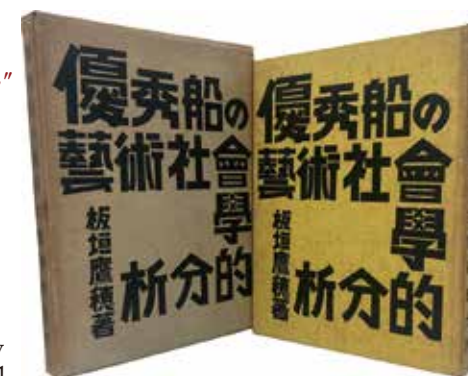 優秀船の
藝術社會
學
的分析
板垣鷹穂著
優秀船の
藝術社會
學
的分析
板垣鷹穂著